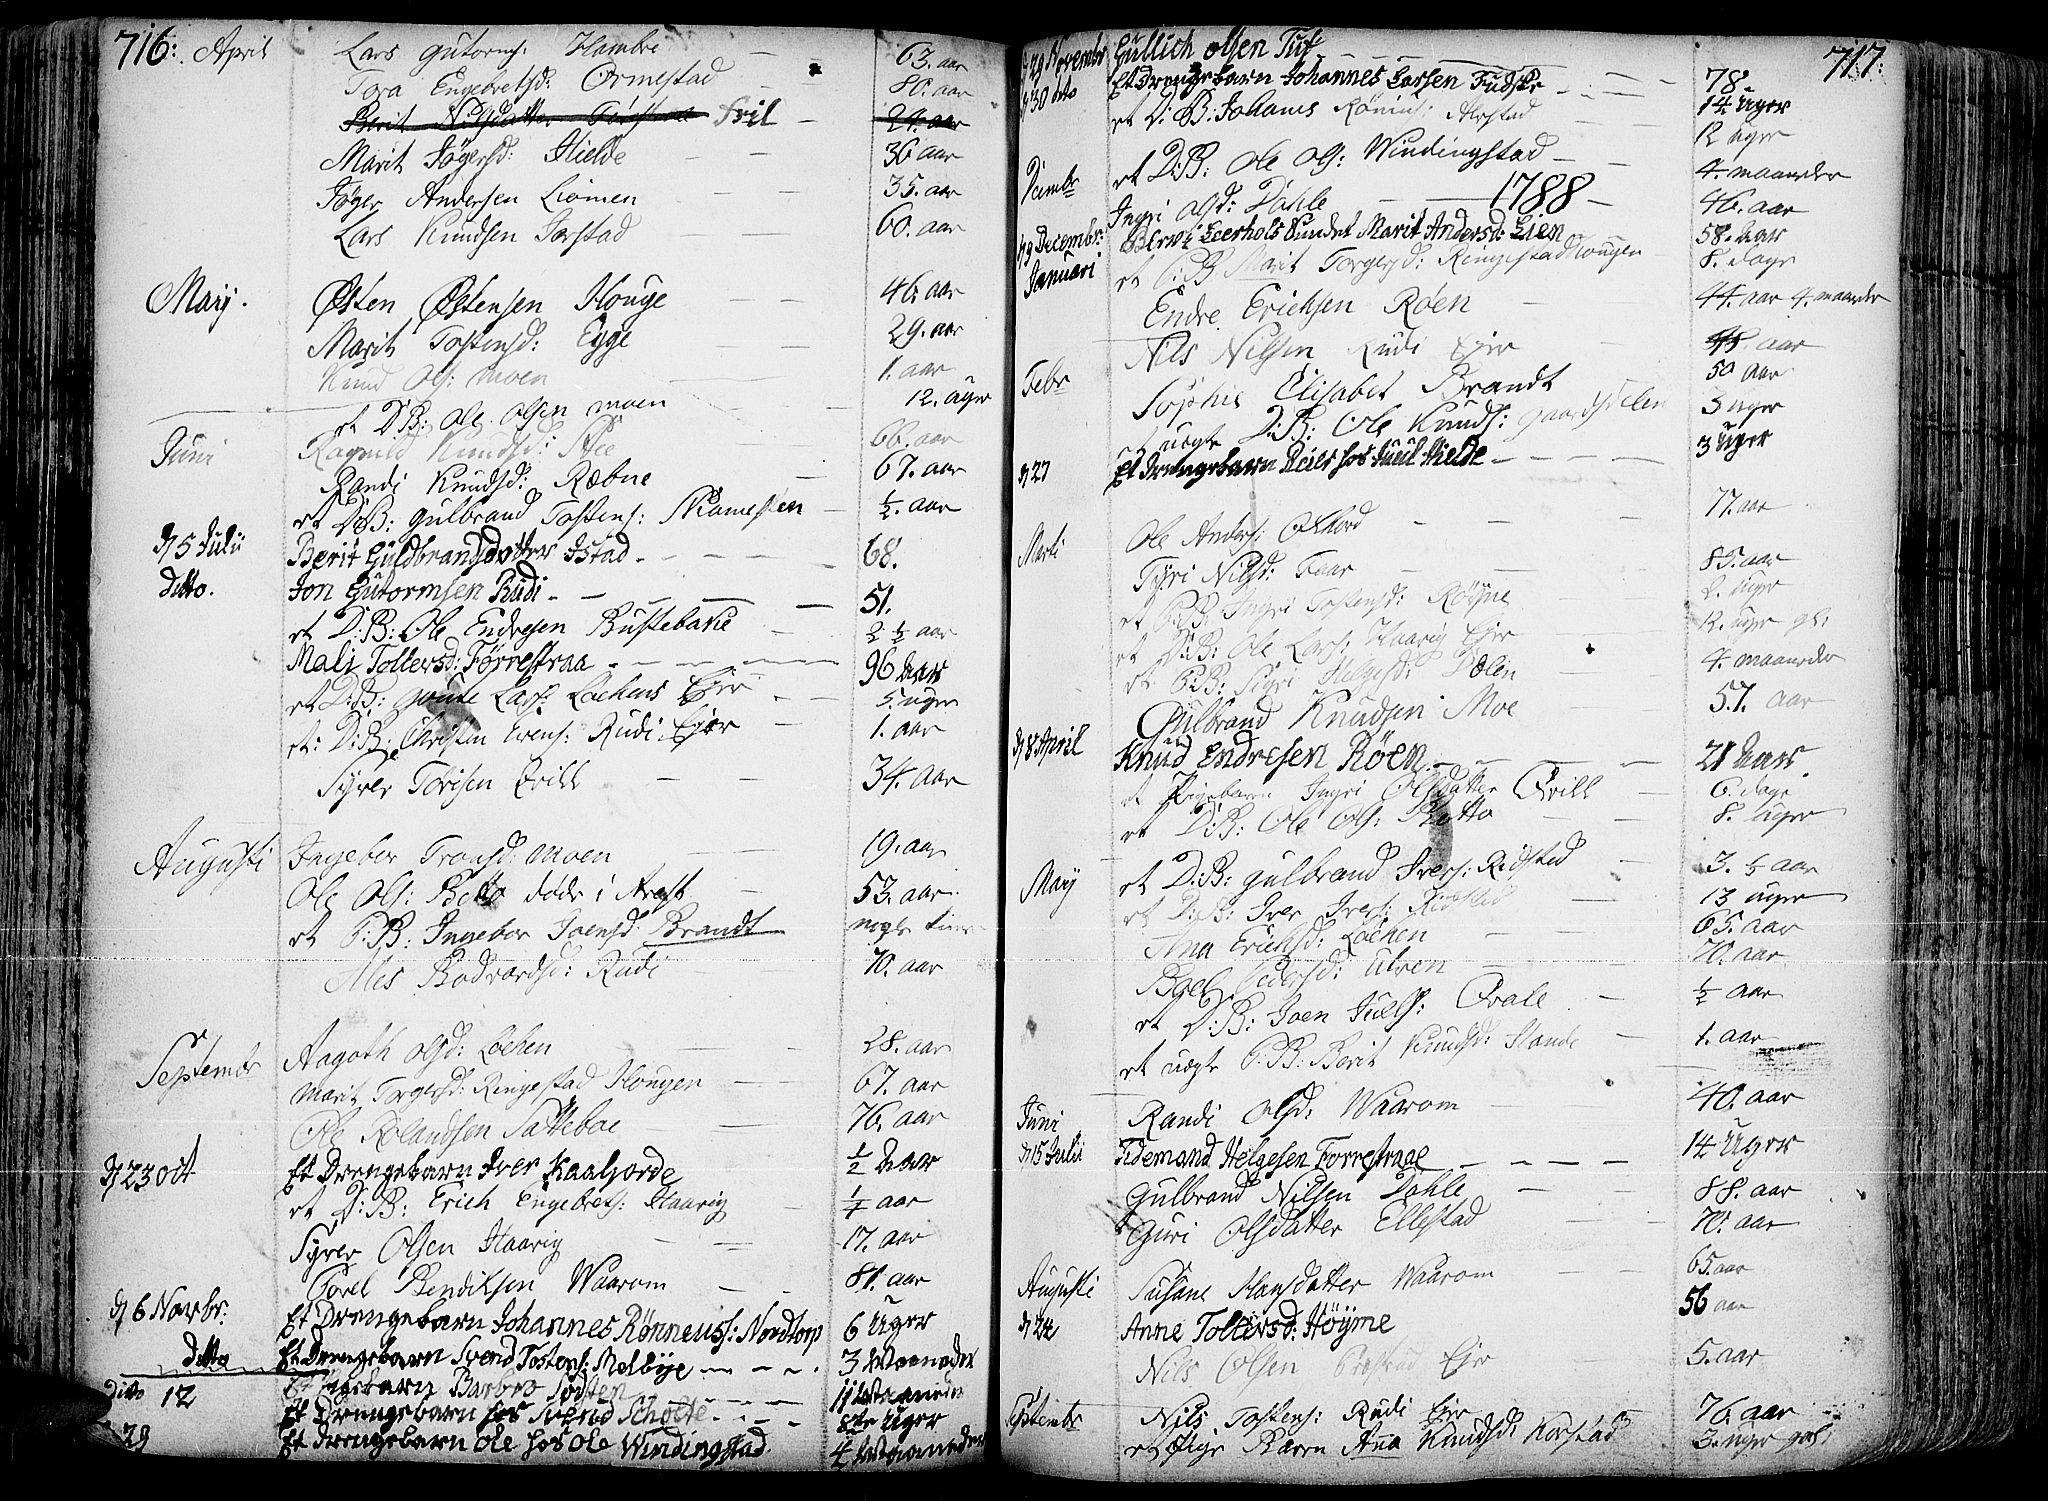 716: April Lars Gutorms: Hambre 63. aar
Tora Engebretsd: Ormestad 80. aar
Berit Nilsdatter fril 29. aar
Marit Jøgersd: Hielde 36 aar
Jøger Andersen Liømen 35. aar
Lars Knudsen Jarstad 60. aar
May. Østen Østensen Houge 46 aar
Marit Tostensd: Egge 29. aar
Knud Ols: Moen 1. aar
et D:B: Ole Olsen Moen 12. uger
Juni Ragnild Knudsd: 66. aar
Randi Knudsd: Ræbne 67. aar
et D:B: Gulbrand Tostens: ½. aar
d 5 Julii Berit Guldbrandsdotter Istad 68.
ditto. Jon Gutormsen Rudi 51.
et D:B: Ole Endresen Bustebakie 2 ½ aar
Mali Tollersd: Førrestraa 96 Aar
et D:B: Lars: Løchens Ejer 5. uger
et: D:B: Christen Ivens: Rudi Ejer 1. aar
Syver Torisen Qvill 34. aar
Augusti Ingebor Tronsd: Moen 19. aar
Ole Ols: døde i Arest 53. aar
et P:B: Ingebor Joensd: Brandt nogle
Bodvardsd: Rudi 70. aar
Septembr Aagoth Olsd: Løchen 28. aar
Marit Torgersd: Ringestad Hougen 67. aar
Ole Rolandsen Satteboe 76. aar
d 23 Oct Et Drengebarn Iver Kaalsorde ½ Aar
et D:B: Erich Engebrets: Haarig ¼ aar
Syver Olsen Haarig 17. aar
Torel Bendiksen Waarom 81. aar
d 6 Novbr: Et Drengebarn Johannes Rønneus: Nordtorp 6 Uger
ditto Et Drengebarn Svend Tostens: Melbye 3 Maaneder
dito 12 Et Barbro 11
Et Drengebarn hos Schøtte Uger
29 Et Drengebarn Ole hos Ole Windingstad 4 Maaneder
717.
d 29 Novembr Gullich Olsen Tuf 78
d 30 dito Et Drengebarn Johannes Larsen Fudske 14 Uger
et D:B: Johanes Alestad 12 uger
Decembr et D:B: Ole Ols: Windingstad 4. maaneder
Ingri Olsd: Dahle 46. aar
1788
d 9 Decembr: Marit Andersd: Lien 58. Aar
Januari et P:B: Marit Torgersd: Ringestadhougen 8. dage
Endre Erichsen Røen 44. aar 4. maaneder
Nils Nilsen Rudi Ejer 48. aar
Febr Sophie Elisabet Brandt 50 aar
et uægte D:B: Ole Knuds: 3 uger
d 27 Et Drengebarn hos Juul Hielde 3 Uger
Marti Ole Anders: Okshord 77. aar
Tyri Nilsd: 85. aar
et P:B: Ingri Tostensd: Røyne 2. uger
et D:B: Ole Lars: Haarig Ejer 12. uger
et P:B: Sigri Helgesd: Dælen 4. maaneder
Gulbrand Knudsen Moe 57. aar
d 8 April Knud Endresen Röen 21 Aar
et Pigebarn Ingri Olsdatter Qvill 6. dage
et D:B: Ole Ols: 8. uger
May et D:B: Gulbrand Ivers: Ridsted 3. ½ aar
et D:B: Iver Ivers: Ridsted 13 uger
Ana Erichsd: Løchen 65. aar
Pedersd: Ulven 70. aar
et D:B: Joen Juels: Qvale ½ aar
et uægte P:B: Berit Knudsd: 1. aar
Juni Randi Olsd: Waarom 40. aar
d 15 Julii Tidemand Helgesen Forrestraae 14 Uger
Gulbrand Nilsen Dahle 88. aar
Guri Olsdatter Ellestad 70. aar
Augusti Susane Hansdatter Waarom 65. aar
d 24 Anne Tollersd: Höyme 56 aar
Nils Olsen Ejer 5. aar
Septembr Nils Tostens: Rudi Ejer 76. aar
et Pige Barn Ana Knudsd: 3. uger